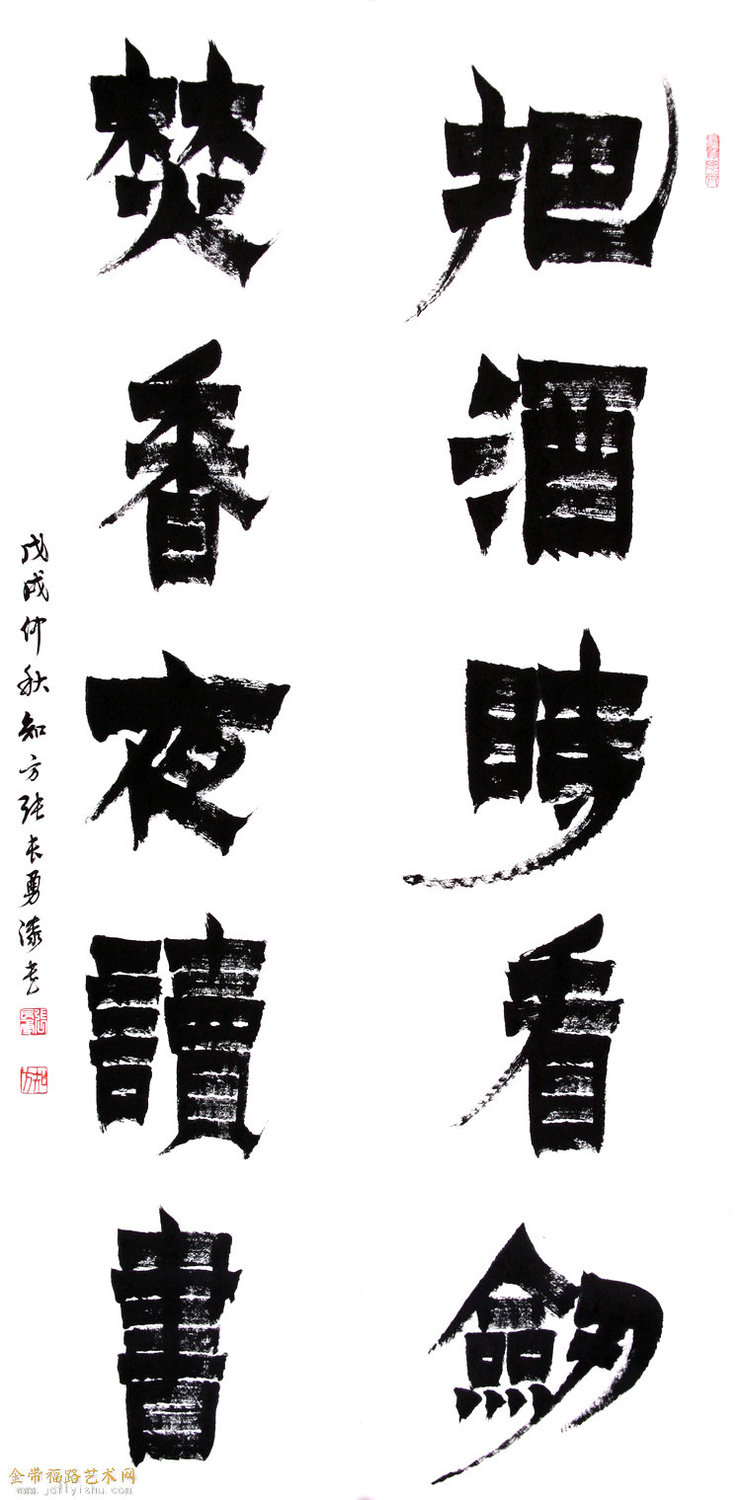 把酒時看劒
焚香夜讀書
戊戌仲秋知方张长勇漆书
金带福路艺术网
www.jdflyishu.com